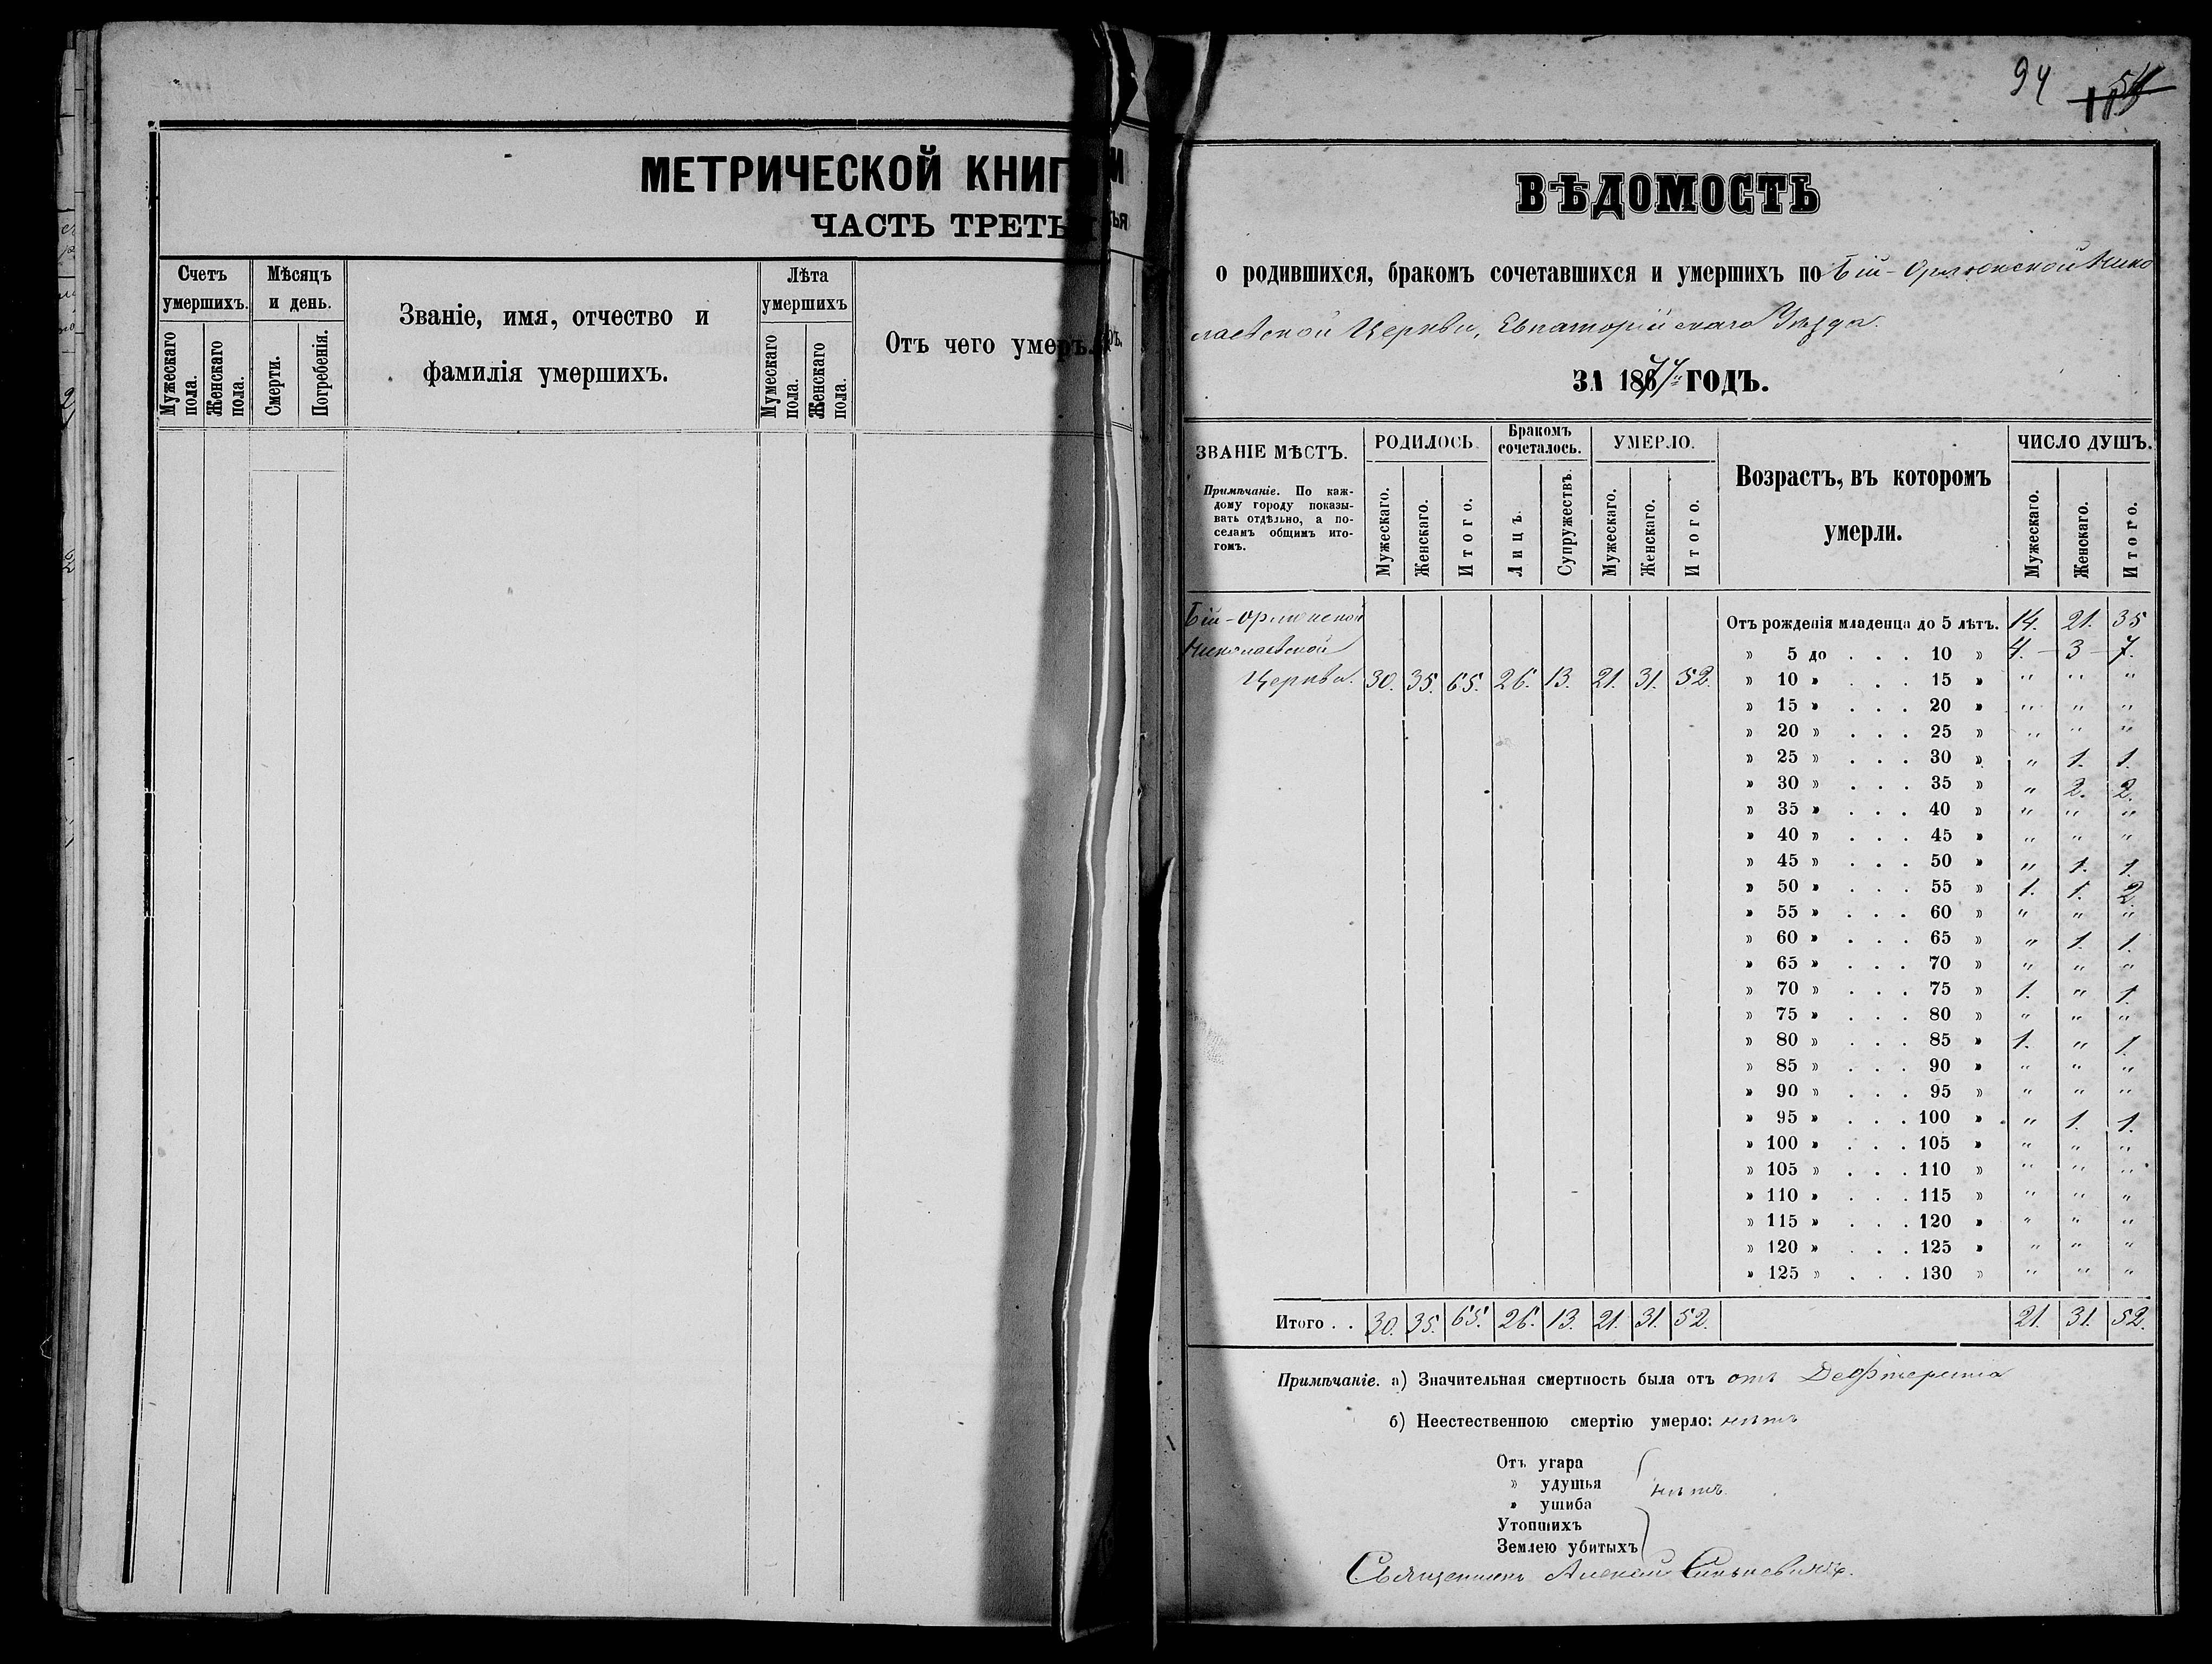 МЕТРИЧЕСКОЙ КНИГИ
ЧАСТЬ ТРЕТЬЯ
Счетъ умершихъ.
Мужескаго пола.
Женскаго пола.
Мѣсяцъ и день.
Смерти.
Погребенія.
Званіе, имя, отчество и
фамилія умершихъ.
Лѣта умершихъ
Мумескаго пола.
Женскаго пола.
Отъ чего умеръ.
94
ВѢДОМОСТЬ
о родившихся, бракомъ сочетавшихся и умершихъ по Бій-Орлюкской Нико
лаевской Церкви, Евпаторійскаго Уѣзда.
ЗА 1877 ГОДЪ.
ЗВАНІЕ МѢСТЪ.
Примѣчаніе. По каж-
дому городу показы-
вать отдѣльно, а по-
селамъ общимъ ито-
гомъ.
РОДИЛОСЬ.
Мужескаго.
Женскаго.
Итого.
Бракомъ
сочеталось.
Лицъ.
Супружествъ.
УМЕРЛО.
Мужескаго.
Женскаго.
Итого.
Возрастъ, въ котором
умерли.
ЧИСЛО ДУШЪ.
Мужескаго.
Женскаго.
Итого.
Бій-Орлюкской
Николаевской
Церкви. 30. 35. 65. 26. 13. 21. 31. 52.
Отъ рожденія младенца до 5 лѣтъ. 14. 21. 35
» 5 до . . . 10 » 4. - 3 - 7.
» 10 » . . . 15 » " " "
» 15 » . . . 20 » " " "
» 20 » . . . 25 » " " "
» 25 » . . . 30 » " 1. 1.
» 30 » . . . 35 » " 2. 2.
» 35 » . . . 40 » " " "
» 40 » . . . 45 » " " "
» 45 » . . . 50 » " 1. 1.
» 50 » . . . 55 » 1. 1. 2.
» 55 » . . . 60 » " " "
» 60 » . . . 65 » " 1. 1.
» 65 » . . . 70 » " " "
» 70 » . . . 75 » 1. " 1.
» 75 » . . . 80 » " " "
» 80 » . . . 85 » 1. " 1.
» 85 » . . . 90 » " " "
» 90 » . . . 95 » " " "
» 95 » . . . 100 » " 1. 1.
» 100 » . . . 105 » " " "
» 105 » . . . 110 » " " "
» 110 » . . . 115 » " " "
» 115 » . . . 120 » " " "
» 120 » . . . 125 » " " "
» 125 » . . . 130 » " " "
Итого . . 30. 35. 65. 26. 13. 21. 31. 52. 21. 31. 52.
Примѣчаніе. а) Значительная смертность была отъ отъ Дефтерита
б) Неестественною смертію умерло: нѣтъ
Отъ угара
» удушья нѣтъ.
» ушиба
Утопшихъ
Землею убитыхъ
Священникъ Алексій